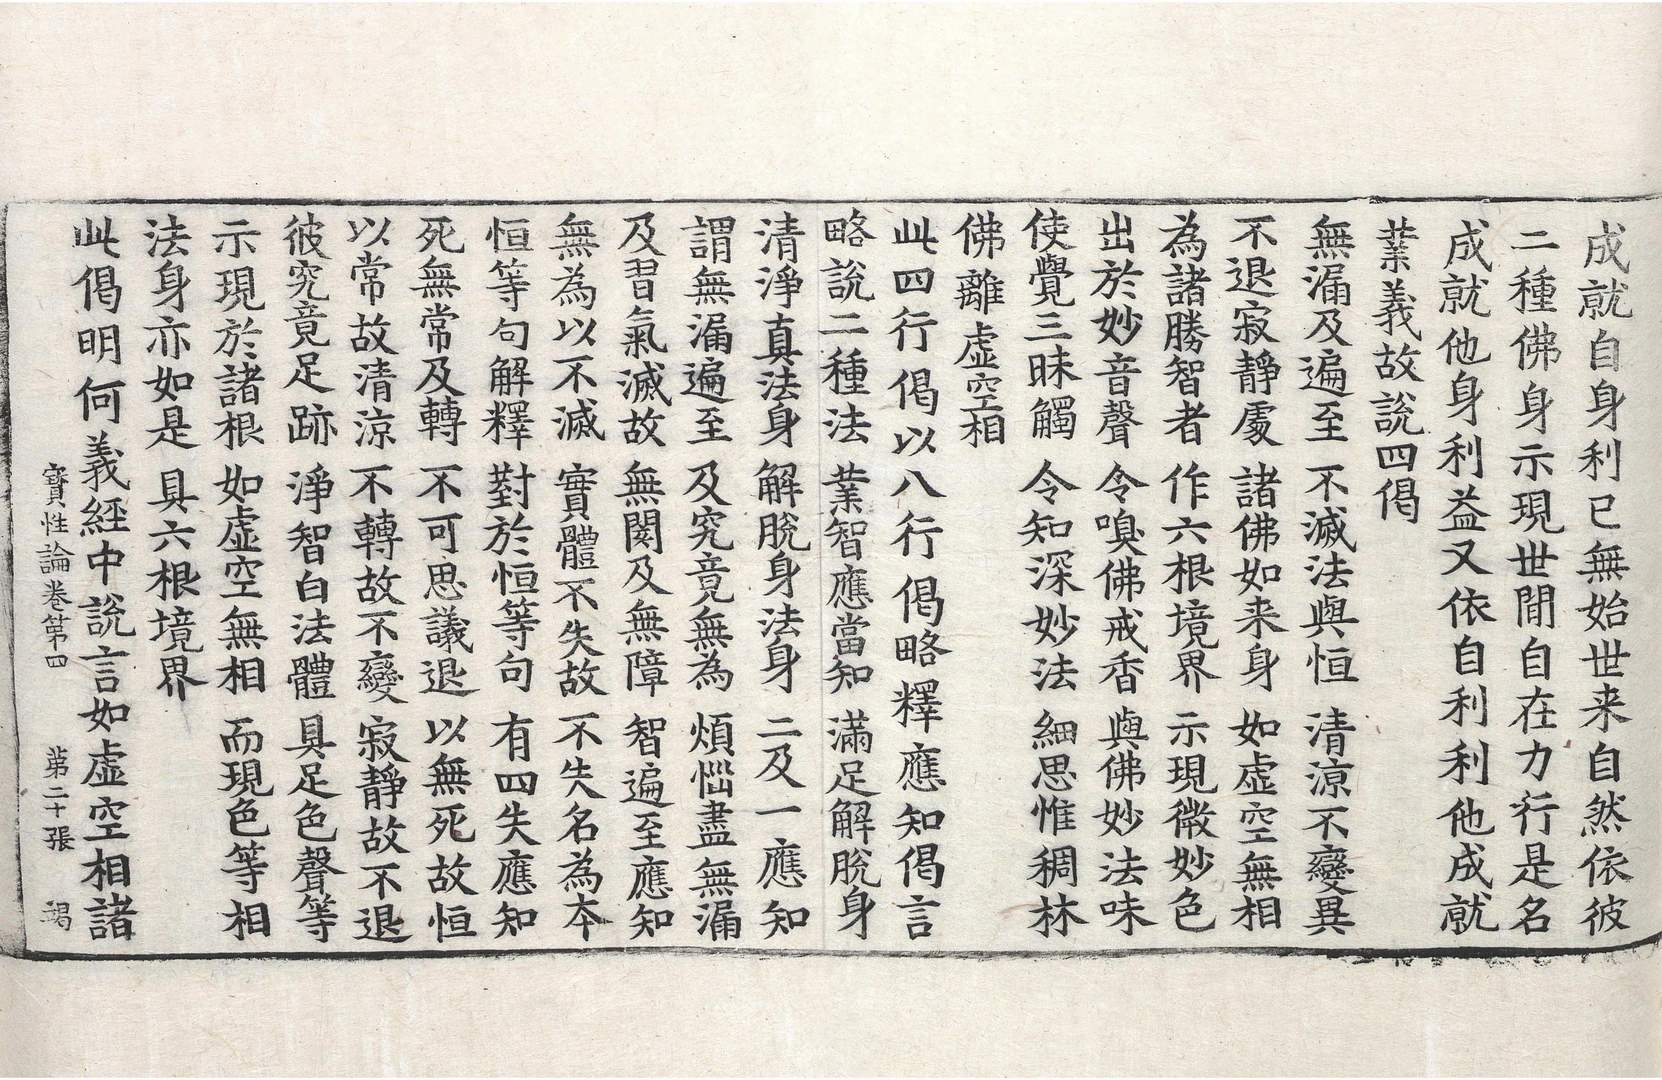 成就自身利已無始世来自然依彼
二種佛身示現世間自在力行是名
成就他身利益又依自利利他成就
業義故說四偈
無漏及遍至 不滅法與恒 清涼不變異
不退寂靜處 諸佛如来身 如虛空無相
為諸勝智者 作六根境界 示現微妙色
出於妙音聲 令嗅佛戒香 與佛妙法味
使覺三昧觸 令知深妙法 細思惟稠林
佛離虛空相
此四行偈以八行偈略釋應知偈言
略說二種法 業智應當知 滿足解脫身
清淨真法身 解脫身法身 二及一應知
謂無漏遍至 及究竟無為 煩惱盡無漏
及習氣滅故 無閡及無障 智遍至應知
無為以不滅 實體不失故 不失名為本
恒等句解釋 對於恒等句 有四失應知
死無常及轉 不可思議退 以無死故恒
以常故清涼 不轉故不變 寂靜故不退
彼究竟足跡 淨智白法體 具足色聲等
示現於諸根 如虛空無相 而現色等相
法身亦如是 具六根境界
此偈明何義經中說言如虛空相諸
寶性論卷第四 第二十張